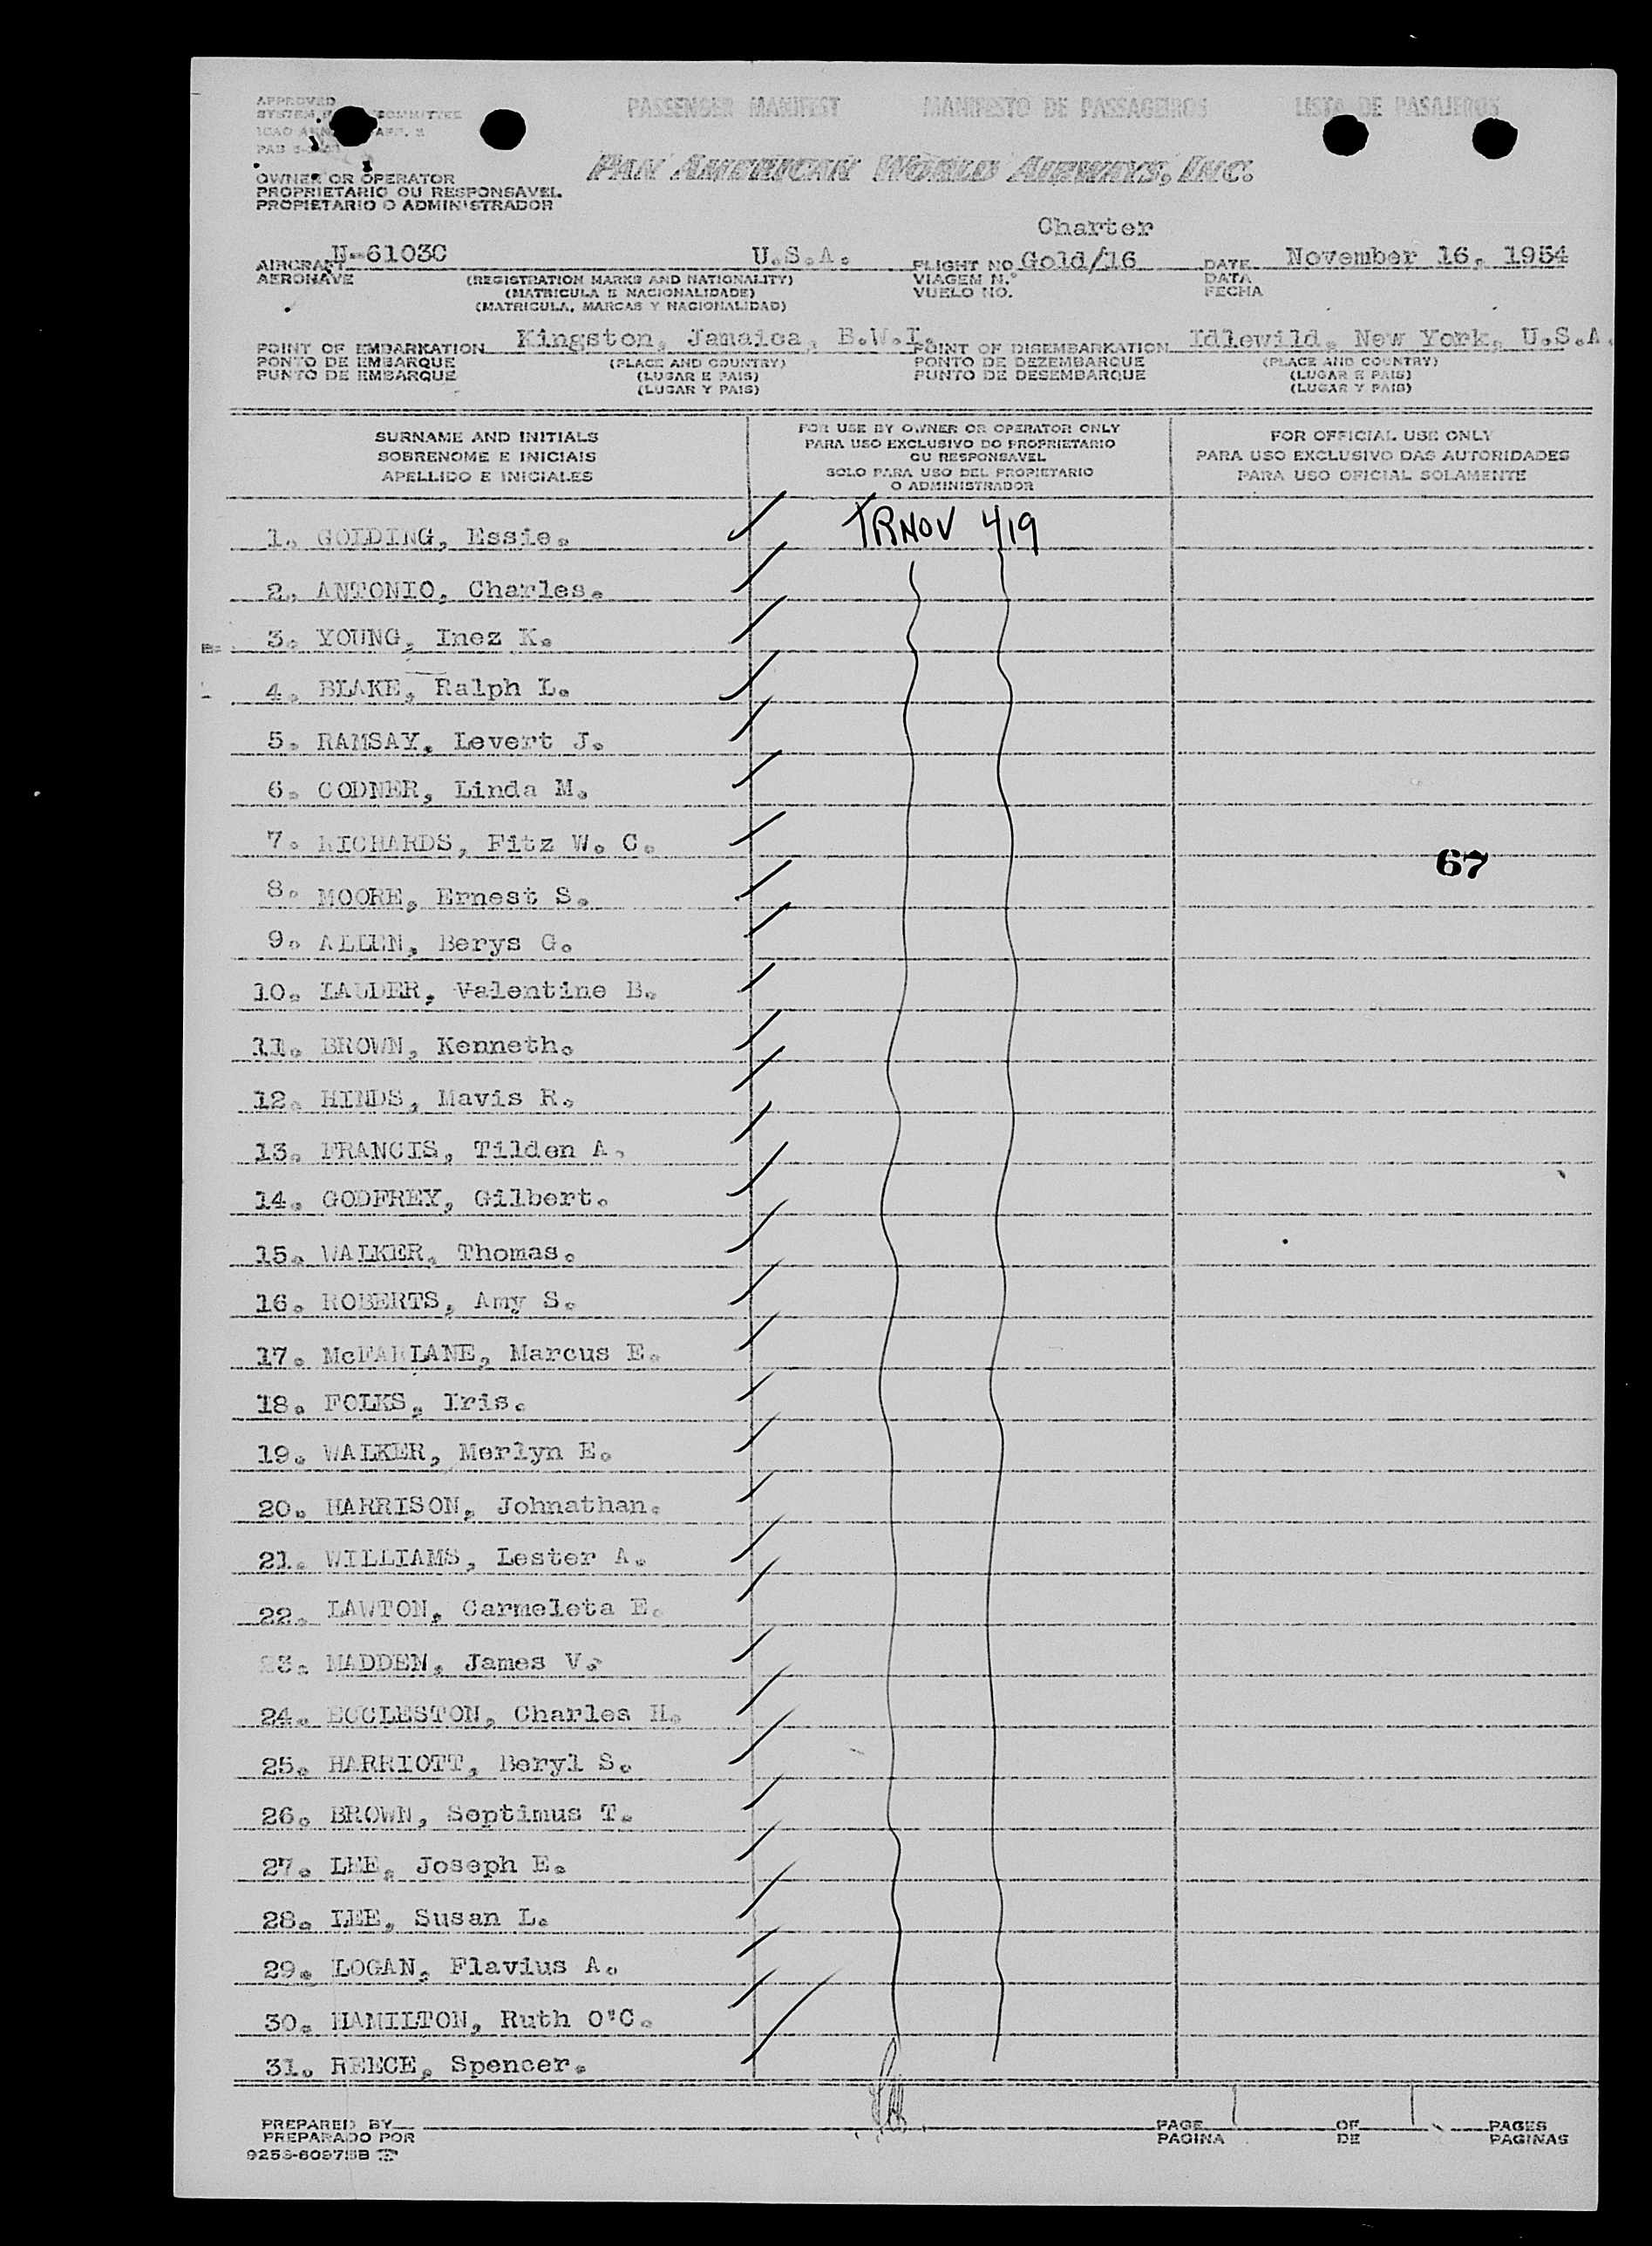 APPROVED PASSENGER MANIFEST MANIFESTO DE PASSAGEIROS LISTA DE PASAJEROS
SYSTEM COMMITTEE
PAN AMERICAN WORLD AIRWAYS, INC.
OWNER OR OPERATOR
PROPRIETARIO OU RESPONSAVEL
PROPIETARIO O ADMINISTRADOR
Charter
AIRCRAFT N-6103C U.S.A. FLIGHT NO Gold/16 DATE November 16, 1954
AERONAVE (REGISTRATION MARKS AND NATIONALITY) VIAGEM N.º DATA
(MATRICULA E NACIONALIDADE) VUELO NO. FECHA
(MATRICULA, MARCAS Y NACIONALIDAD)
POINT OF EMBARKATION Kingston, Jamaica, B.W.I. POINT OF DISEMBARKATION Idlewild, New York, U.S.A.
PONTO DE EMBARQUE (PLACE AND COUNTRY) PONTO DE DEZEMBARQUE (PLACE AND COUNTRY)
PUNTO DE EMBARQUE (LUGAR E PAIS) PUNTO DE DESEMBARQUE (LUGAR E PAIS)
(LUGAR Y PAIS) (LUGAR Y PAIS)
SURNAME AND INITIALS
SOBRENOME E INICIAIS
APELLIDO E INICIALES
FOR USE BY OWNER OR OPERATOR ONLY
PARA USO EXCLUSIVO DO PROPRIETARIO
OU RESPONSAVEL
SOLO PARA USO DEL PROPIETARIO
O ADMINISTRADOR
FOR OFFICIAL USE ONLY
PARA USO EXCLUSIVO DAS AUTORIDADES
PARA USO OFICIAL SOLAMENTE
1. GOLDING, Essie. TRNOV 419
2. ANTONIO, Charles.
3. YOUNG, Inez K.
4. BLAKE, Ralph L.
5. RAMSAY, Levert J.
6. CODNER, Linda M.
7. RICHARDS, Fitz W. C.
67
8. MOORE, Ernest S.
9. ALLEN, Berys G.
10. LAUDER, Valentine B.
11. BROWN, Kenneth.
12. HINDS, Mavis R.
13. FRANCIS, Tilden A.
14. GODFREY, Gilbert.
15. WALKER, Thomas.
16. ROBERTS, Amy S.
17. McFARLANE, Marcus E.
18. FOLKS, Iris.
19. WALKER, Merlyn E.
20. HARRISON, Johnathan.
21. WILLIAMS, Lester A.
22. LAWTON, Carmeleta E.
23. MADDEN, James V.
24. ECCLESTON, Charles H.
25. HARRIOTT, Beryl S.
26. BROWN, Septimus T.
27. LEE, Joseph E.
28. LEE, Susan L.
29. LOGAN, Flavius A.
30. HAMILTON, Ruth O'C.
31. REECE, Spencer.
PREPARED BY PAGE OF PAGES
PREPARADO POR PAGINA DE PAGINAS